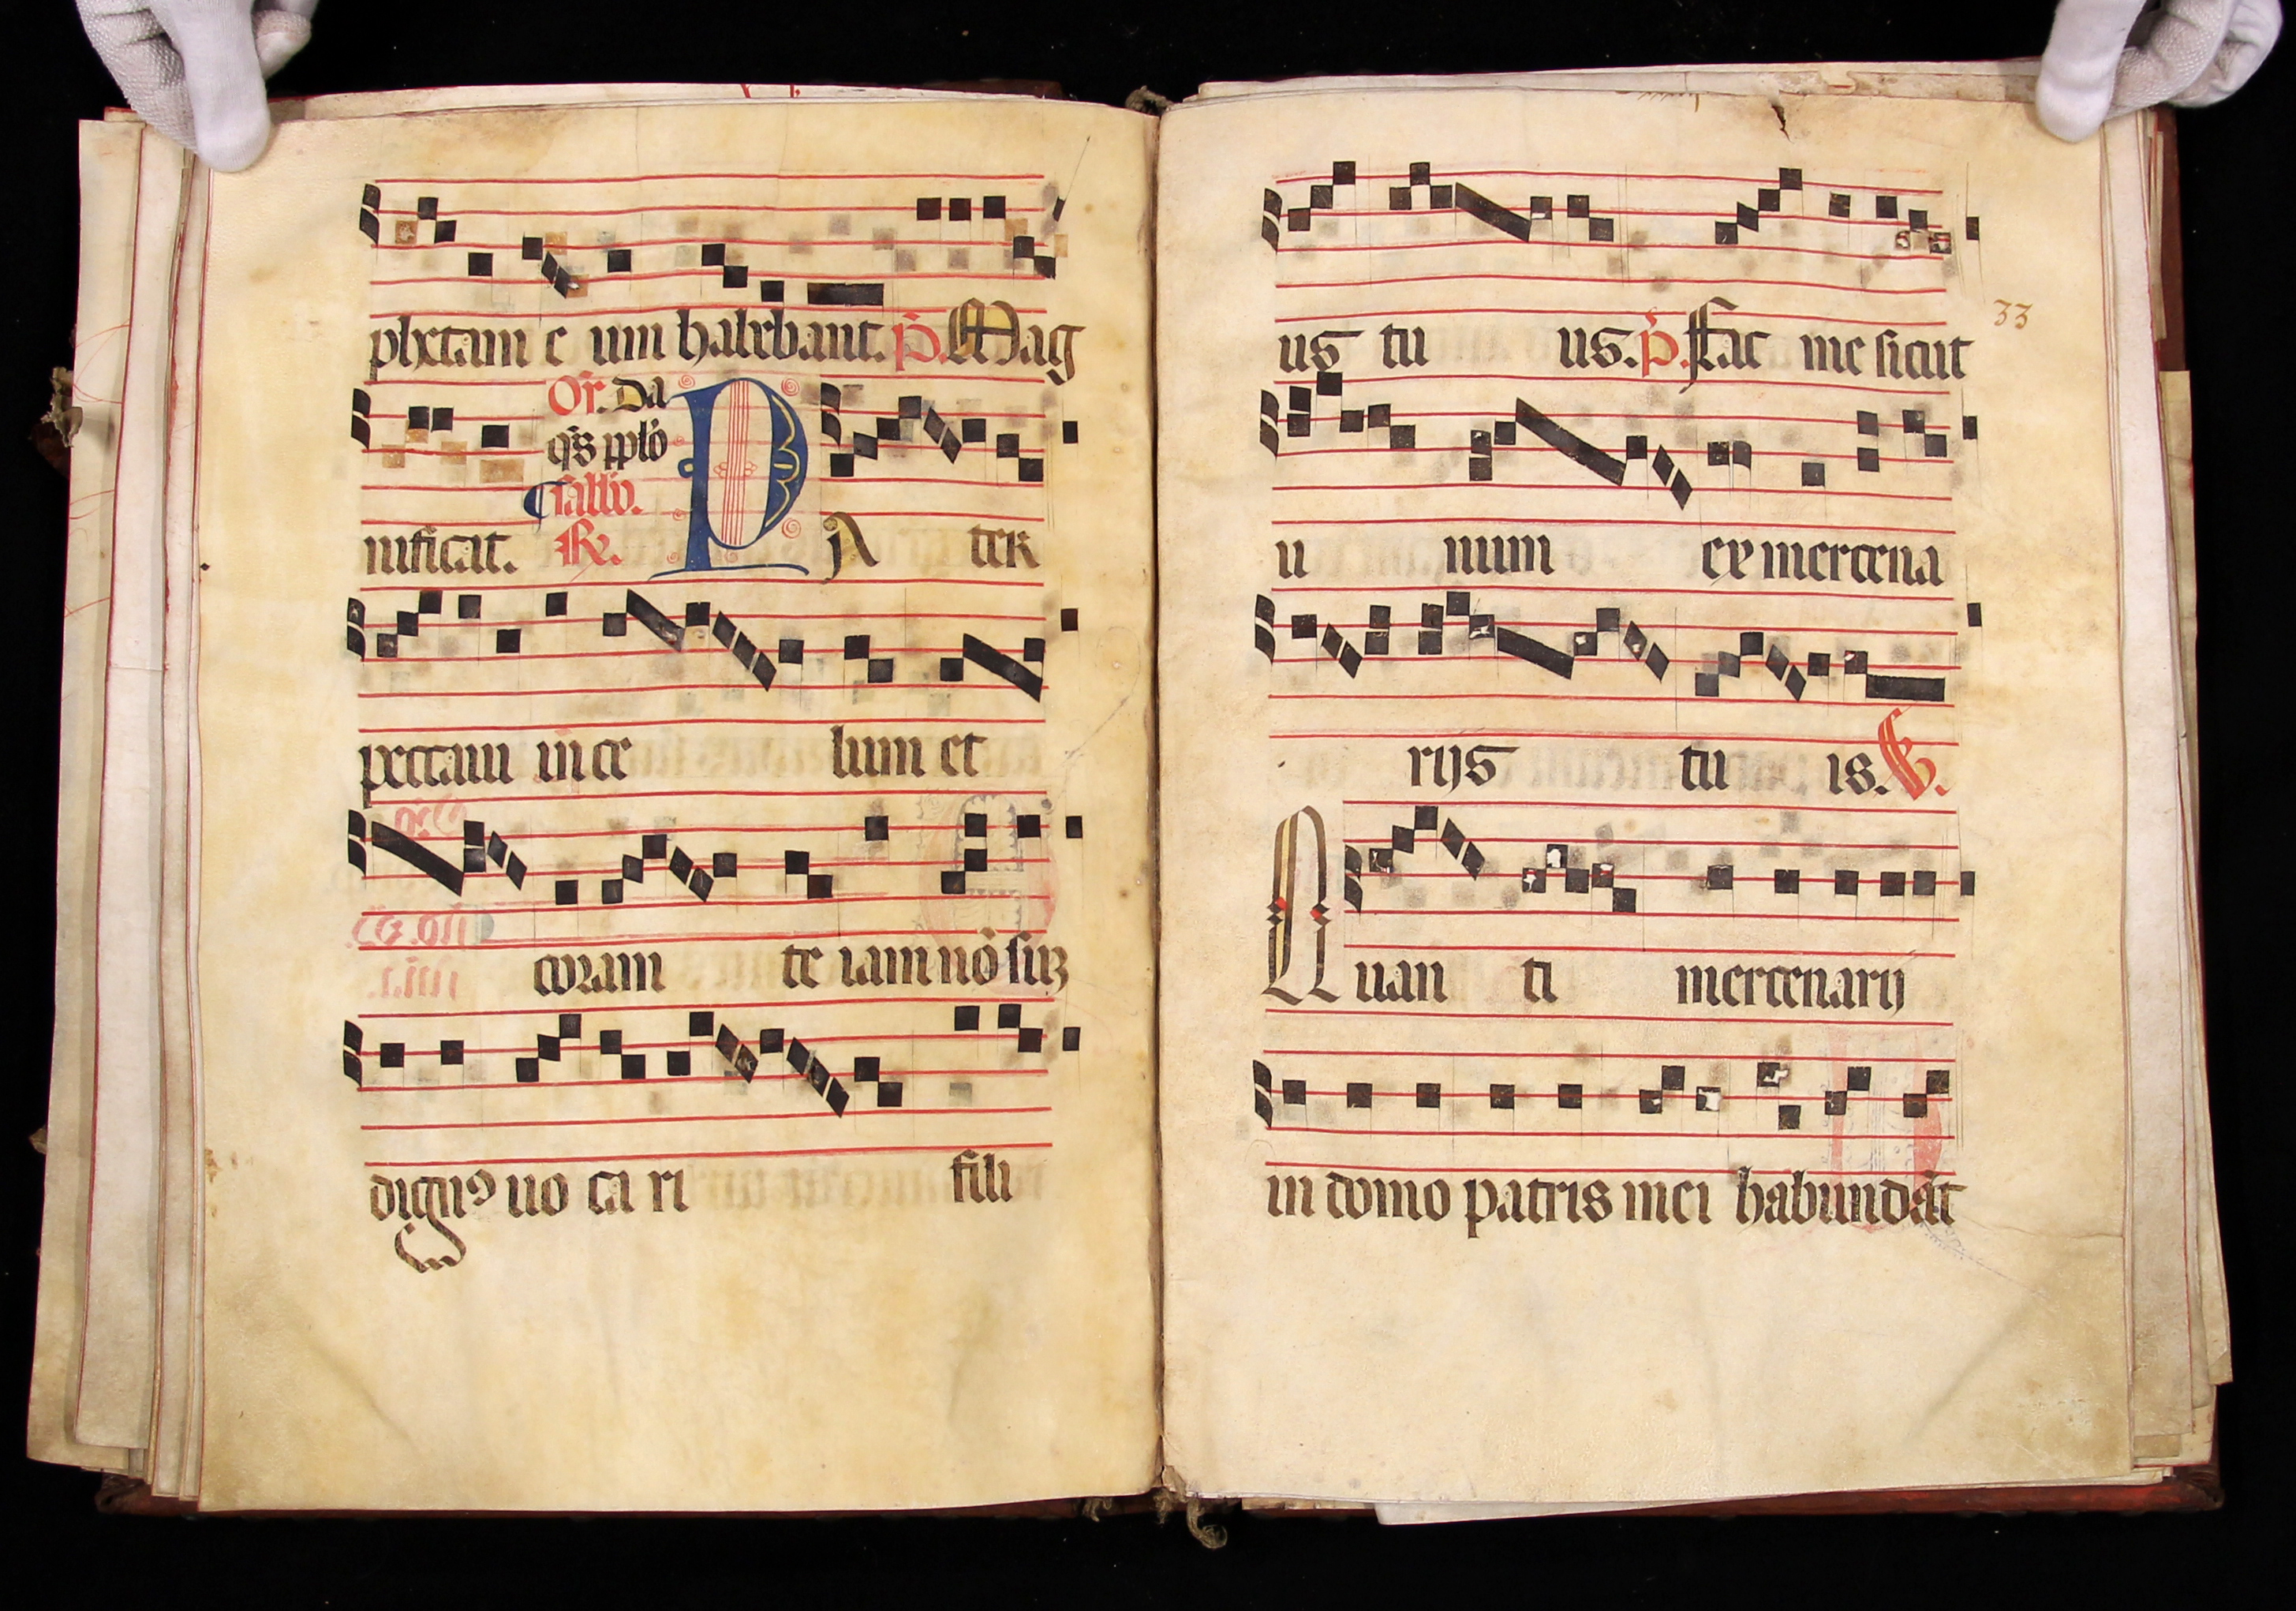 phetam e um habebant. P̄. Mag
Or̄. Da
q̄s pplō
Sabbō.
nificat. R̄. P A ter
peccavi in ce lum et
coram te iam nō suꝫ
dignꝯ vo ca ri fili
33
us tu us. P̄. Fac me sicut
u num ex mercena
rijs tu is. V̄.
Quan ti mercenarij
in domo patris mei habundāt